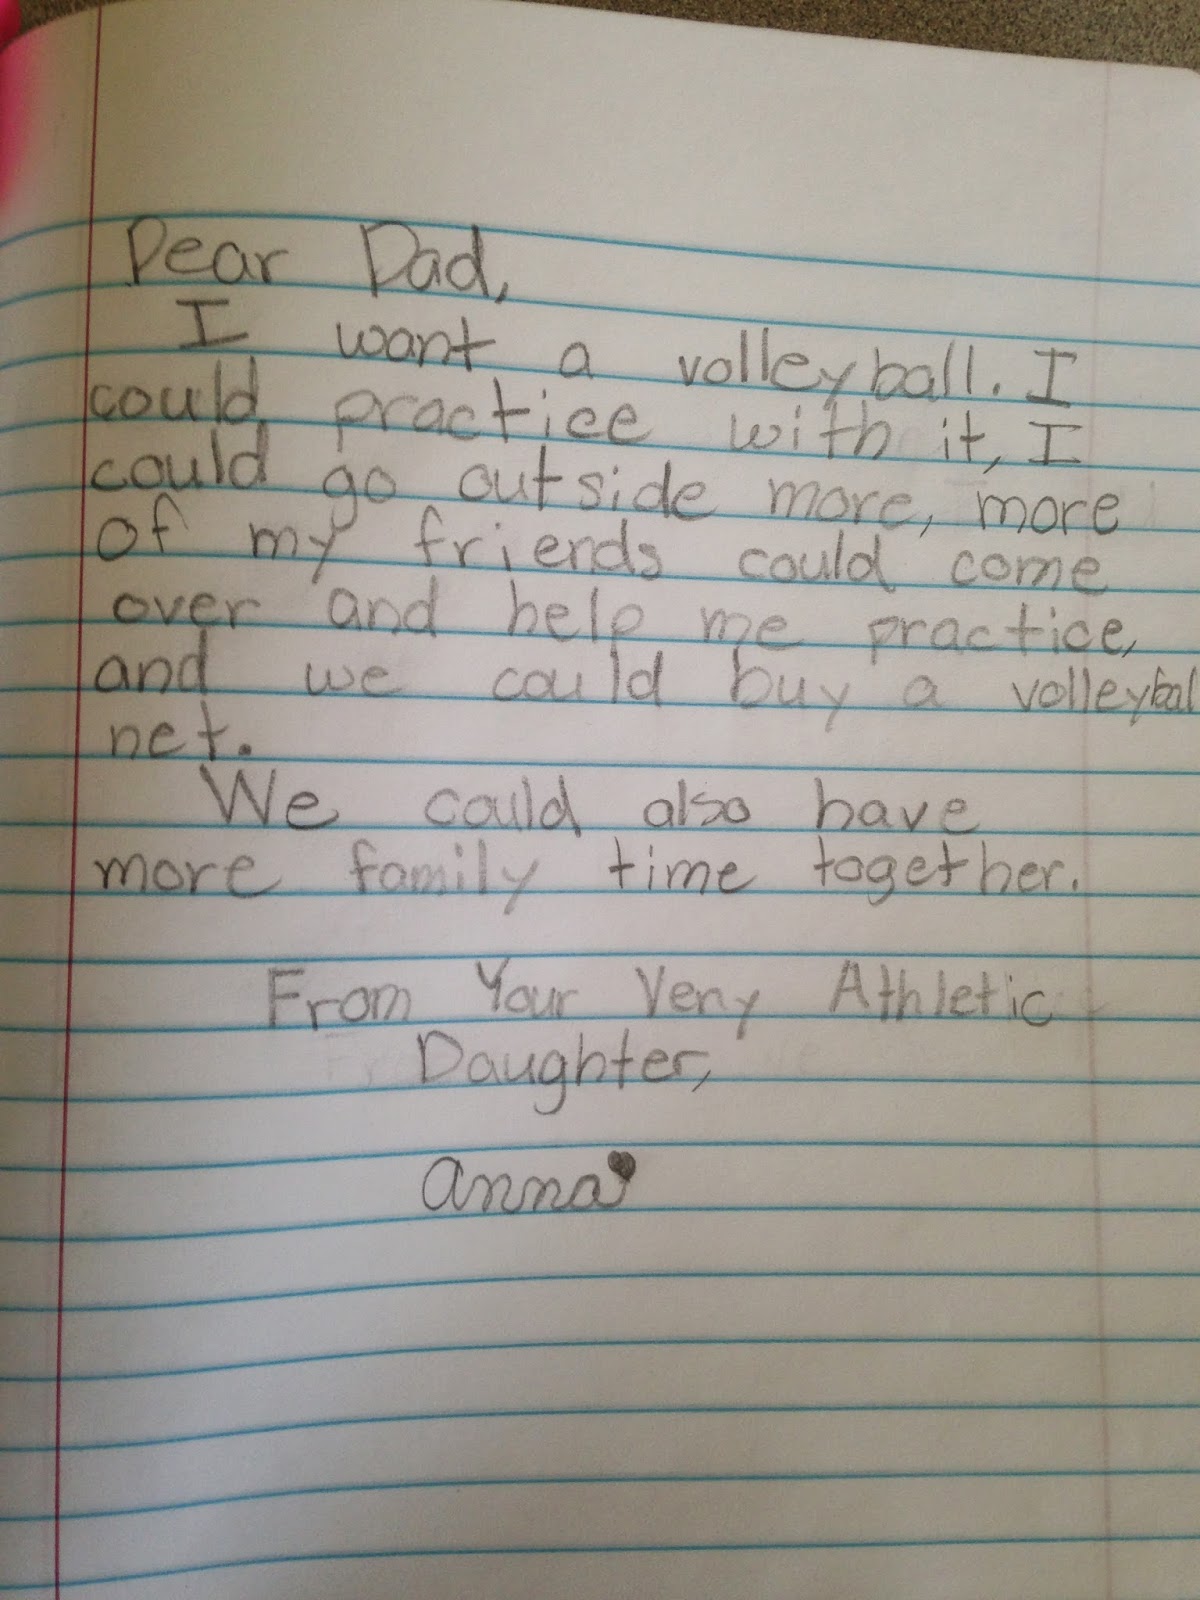 Dear Dad,
I want a volleyball. I
could practice with it, I
could go outside more, more
of my friends could come
over and help me practice,
and we could buy a volleyball
net.
We could also have
more family time together.
From Your Very Athletic
Daughter,
Anna